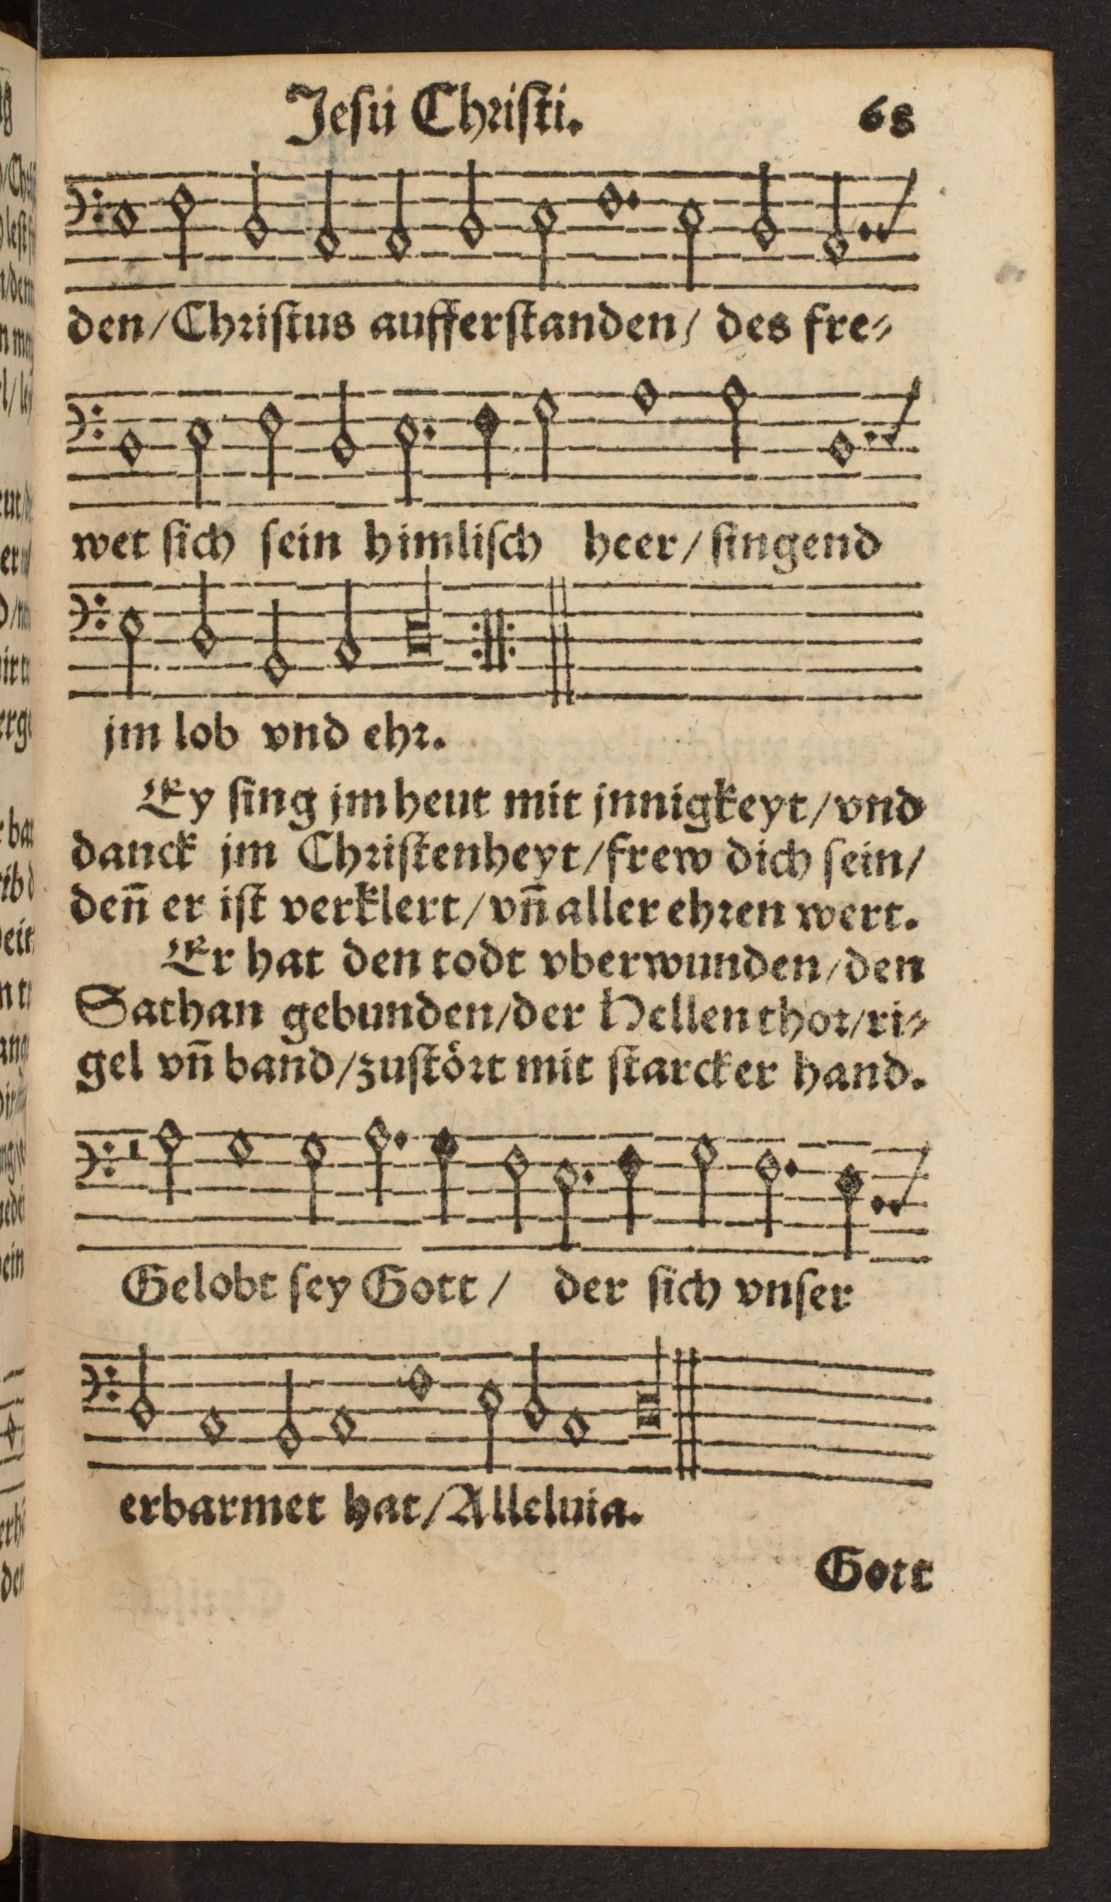 Jesu Christi.
68
den/Christus aufferstanden/ des fre⸗
wet sich sein himlisch heer/singend
jm lob vnd ehr.
Ey sing jm heut mit jnnigkeyt/vnd
danck jm Christenheyt/frew dich sein/
deñ er ist verklert/vñ aller ehren wert.
Er hat den todt vberwunden/den
Sathan gebunden/der Hellen thor/ri⸗
gel vñ band/zustört mit starcker hand.
Gelobt sey Gott/ der sich vnser
erbarmet hat/Alleluia.
Gott